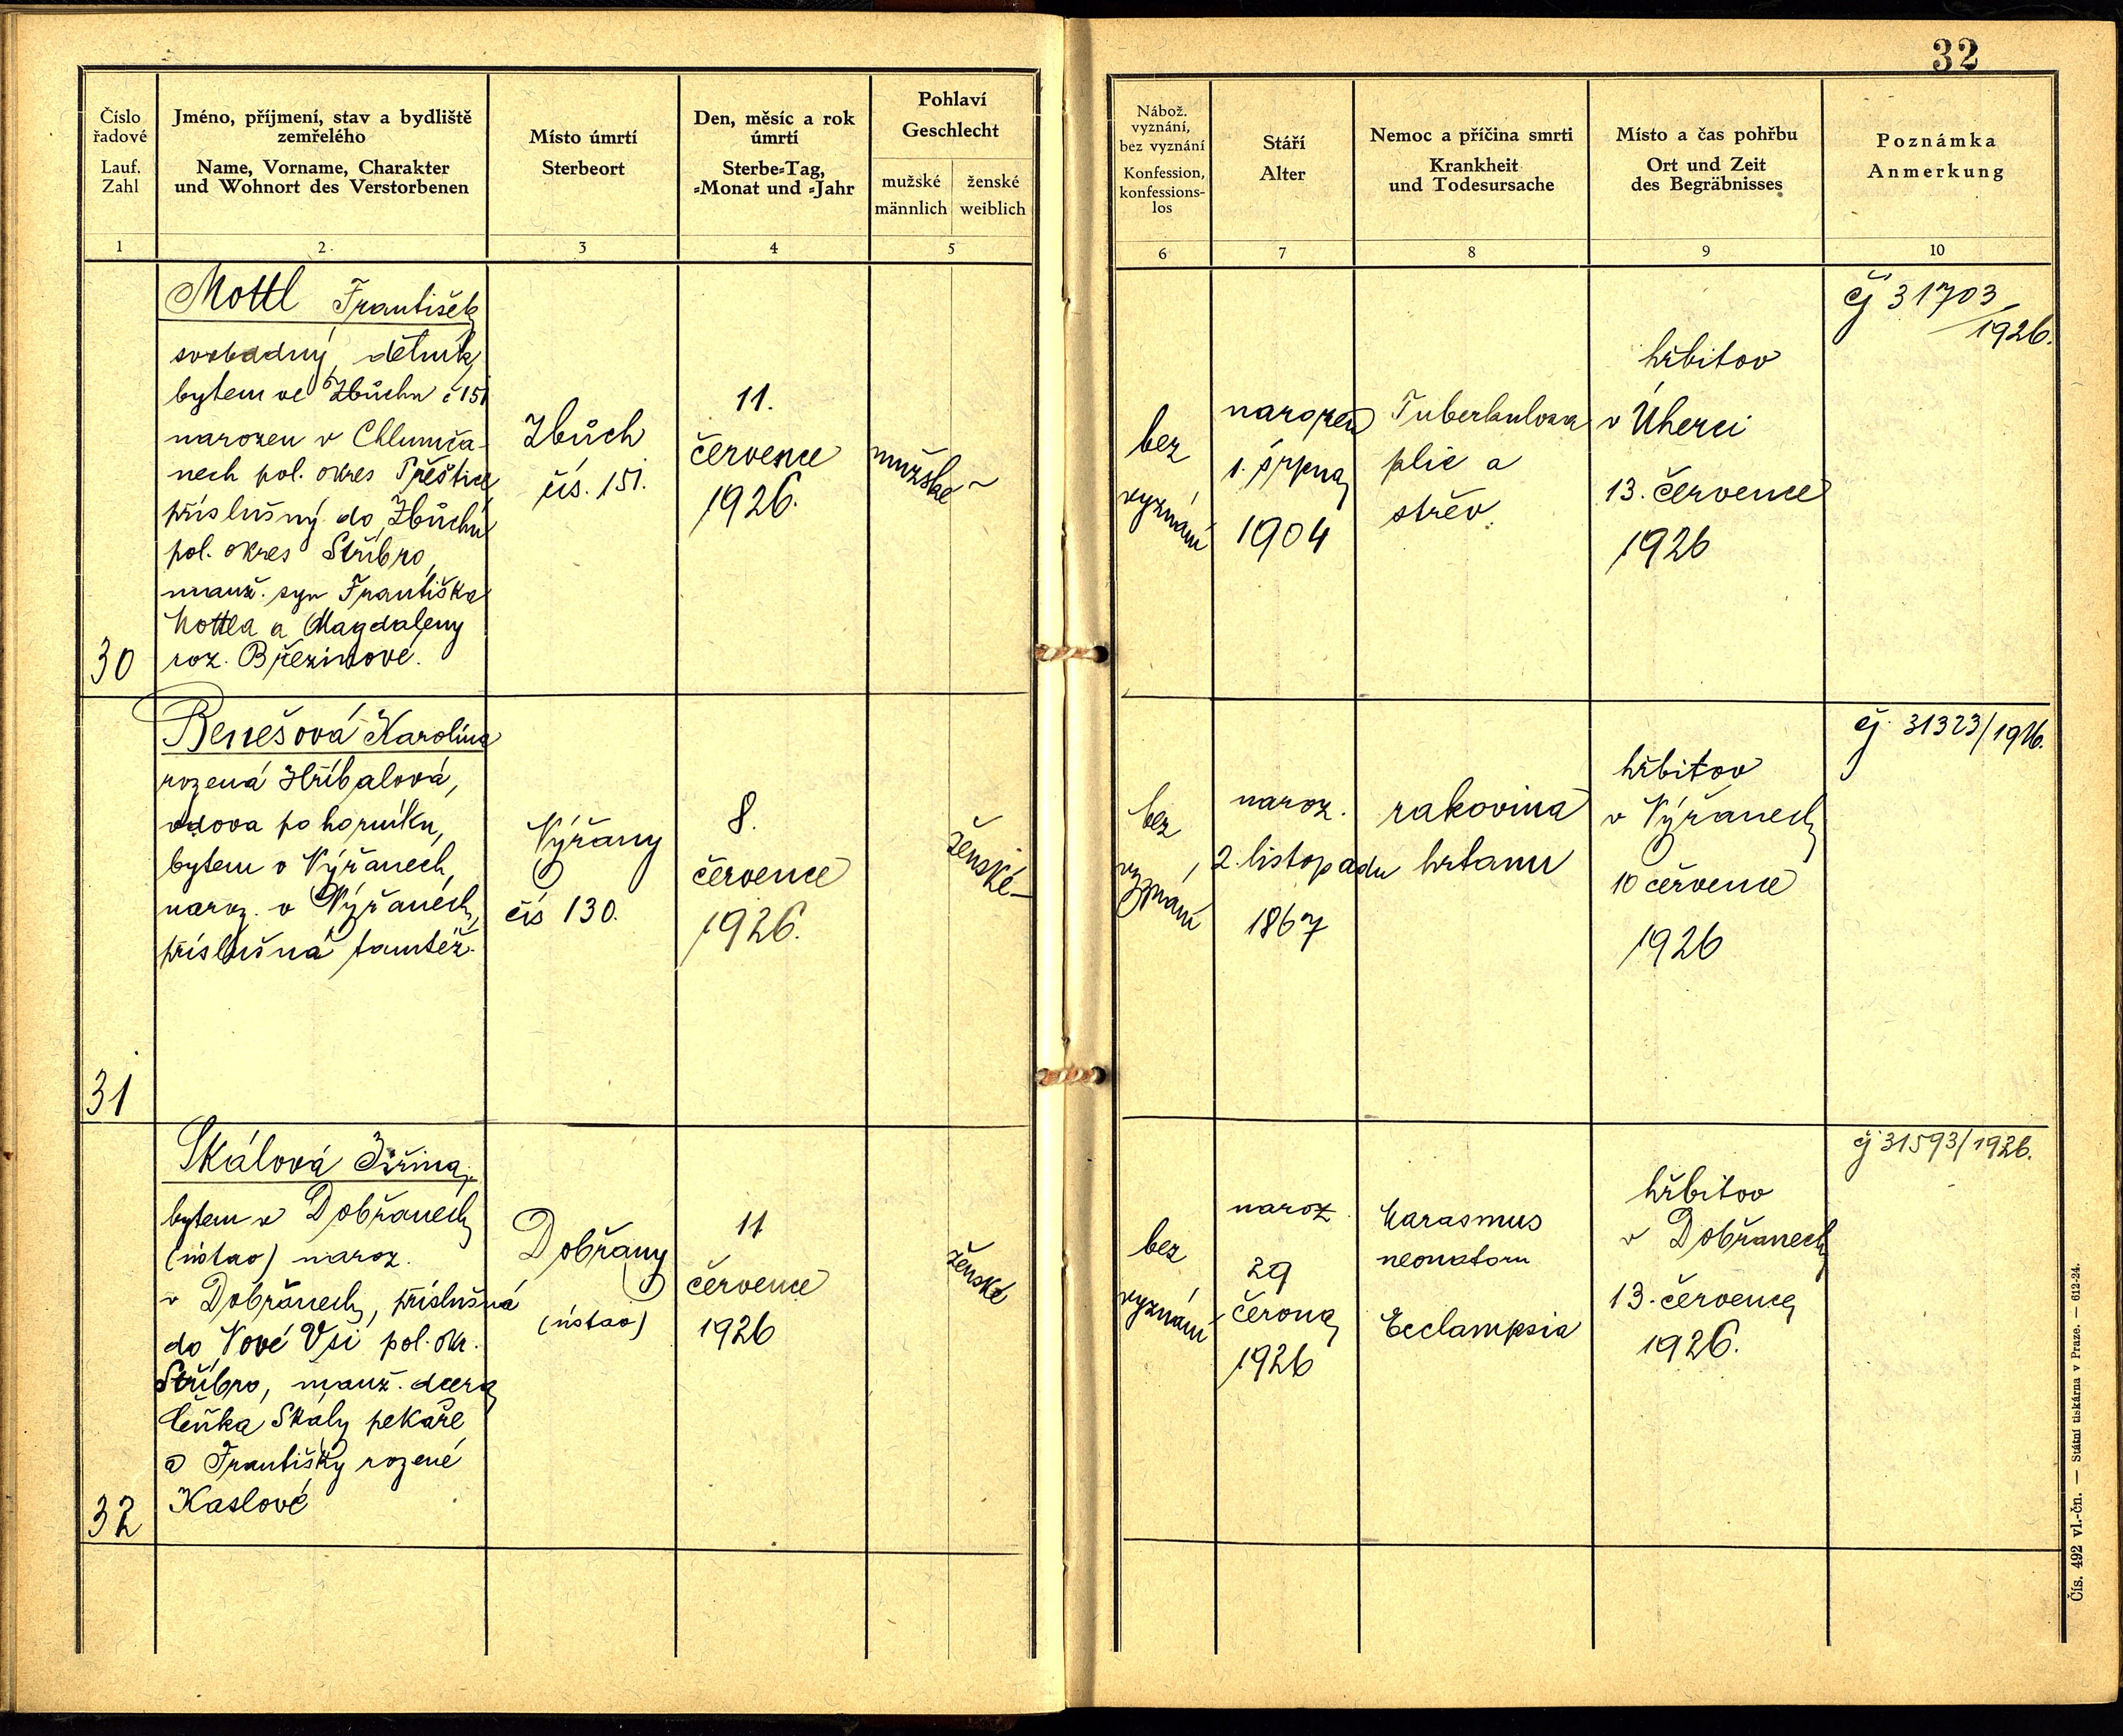 32
Číslo
řadové
Lauf.
Zahl
1
Jméno, příjmení, stav a bydliště
zemřelého
Name, Vorname, Charakter
und Wohnort des Verstorbenen
2
Místo úmrtí
Sterbeort
3
Den, měsíc a rok
úmrtí
Sterbe-Tag,
-Monat und -Jahr
4
Pohlaví
Geschlecht
mužské
männlich
ženské
weiblich
5
Nábož.
vyznání,
bez vyznání
Konfession,
konfessions-
los
6
Stáří
Alter
7
Nemoc a příčina smrti
Krankheit
und Todesursache
8
Místo a čas pohřbu
Ort und Zeit
des Begräbnisses
9
Poznámka
Anmerkung
10
30
Mottl František
svobodný dělník
bytem ve Zbůchu č 151
narozen v Chlumča-
nech pol. okres Přeštice
příslušný do Zbůchu
pol. okres Stříbro,
manž. syn Františka
Mottla a Magdaleny
roz. Březinové.
Zbůch
čís. 151.
11.
července
1926.
mužské
bez
vyznání
narozen
1. srpna
1904
Tuberkulosa
plic a
střev.
hřbitov
v Úherci
13. července
1926
čj 31703/
1926.
31
Benešová Karolina
rozená Hříbalová,
vdova po horníku,
bytem v Nýřanech,
naroz. v Nýřanech,
příslušná tamtéž.
Nýřany
čís 130.
8.
července
1926.
ženské
bez
vyznání
naroz.
2. listopadu
1867
rakovina
hrtanu
hřbitov
v Nýřanech
10 července
1926
čj. 31323/1926.
32
Skálová Jiřina,
bytem v Dobřanech
(ústav) naroz.
v Dobřanech, příslušná
do Nové Vsi pol. okr.
Stříbro, manž. dcera
Čeňka Skály pekaře
a Františky rozené
Kaslové
Dobřany
(ústav)
11
července
1926
ženské
bez
vyznání
naroz.
29
června
1926
Marasmus
neonatoru
Ecclampsia
hřbitov
v Dobřanech
13. července
1926.
čj 31593/1926.
Čís. 492 vl.-čn. — Státní tiskárna v Praze. — 612-24.